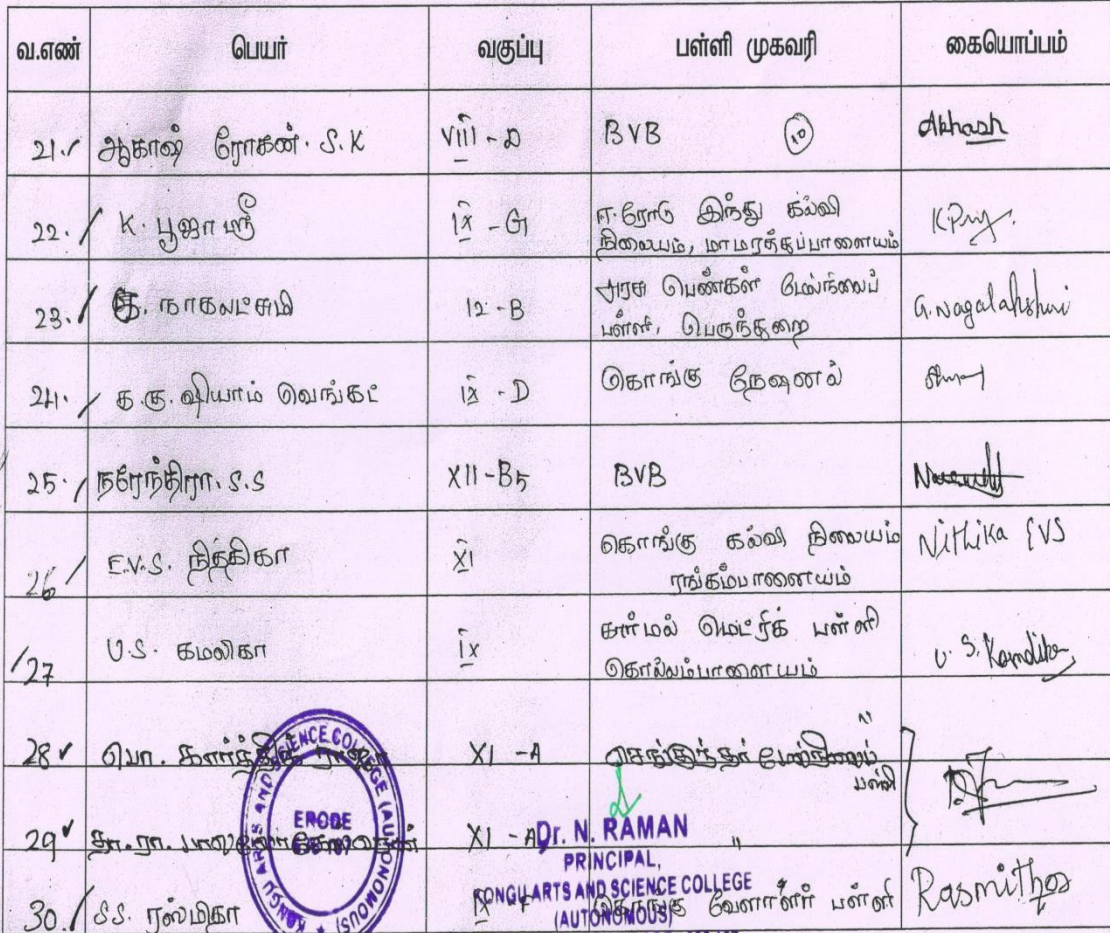 வ.எண் பெயர் வகுப்பு பள்ளி முகவரி கையொப்பம்
21. ஆகாஷ் ரோகன். S.K VIII - D BVB 10 Akhash
22. K. பூஜா ஸ்ரீ IX - G ஈ.ரோடு இந்து கல்வி
நிலையம், மாமரத்துப்பாளையம்
23. நாகலட்சுமி 12 - B அரசு பெண்கள் மேல்நிலைப்
பள்ளி, பெருந்துறை G. Nagalakshmi
24. த.கு. ஷியாம் வெங்கட் IX - D கொங்கு நேஷனல்
25. நரேந்திரா. S.S XII - B5 BVB
26 E.V.S. நித்திகா XI கொங்கு கல்வி நிலையம் Nithika EVS
ரங்கம்பாளையம்
27 U.S. கமலிகா IX கார்மல் மெட்ரிக் பள்ளி
கொல்லம்பாளையம் U. S. Kamalika
28 பொ. கார்த்திக் XI - A செங்குந்தர் மேல்நிலைப்
பள்ளி
29 தா.ரா. XI - A "
30. S.S. ரஸ்மிகா IX கொங்கு வேளாளர் பள்ளி Rasmitha
KONGU ARTS AND SCIENCE COLLEGE (AUTONOMOUS)
ERODE
Dr. N. RAMAN
PRINCIPAL,
KONGU ARTS AND SCIENCE COLLEGE
(AUTONOMOUS)